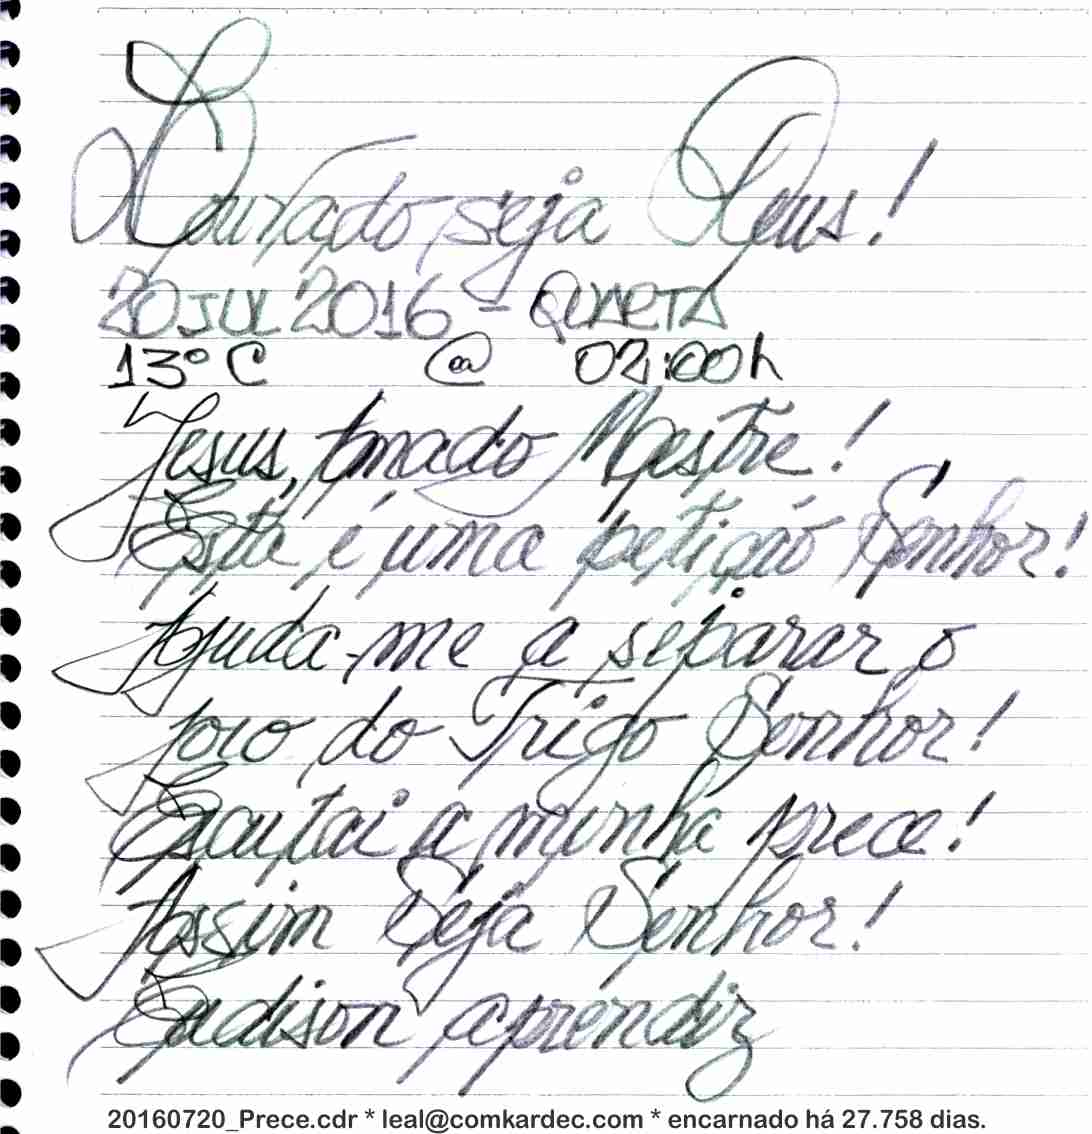 Louvado seja Deus!
20 JUL 2016 - QUARTA
13º C @ 02:00h
Jesus, Amado Mestre!
Esta é uma petição Senhor!
Ajuda-me a separar o
joio do Trigo Senhor!
Escutai a minha prece!
Assim Seja Senhor!
Eadison aprendiz
20160720_Prece.cdr * leal@comkardec.com * encarnado há 27.758 dias.